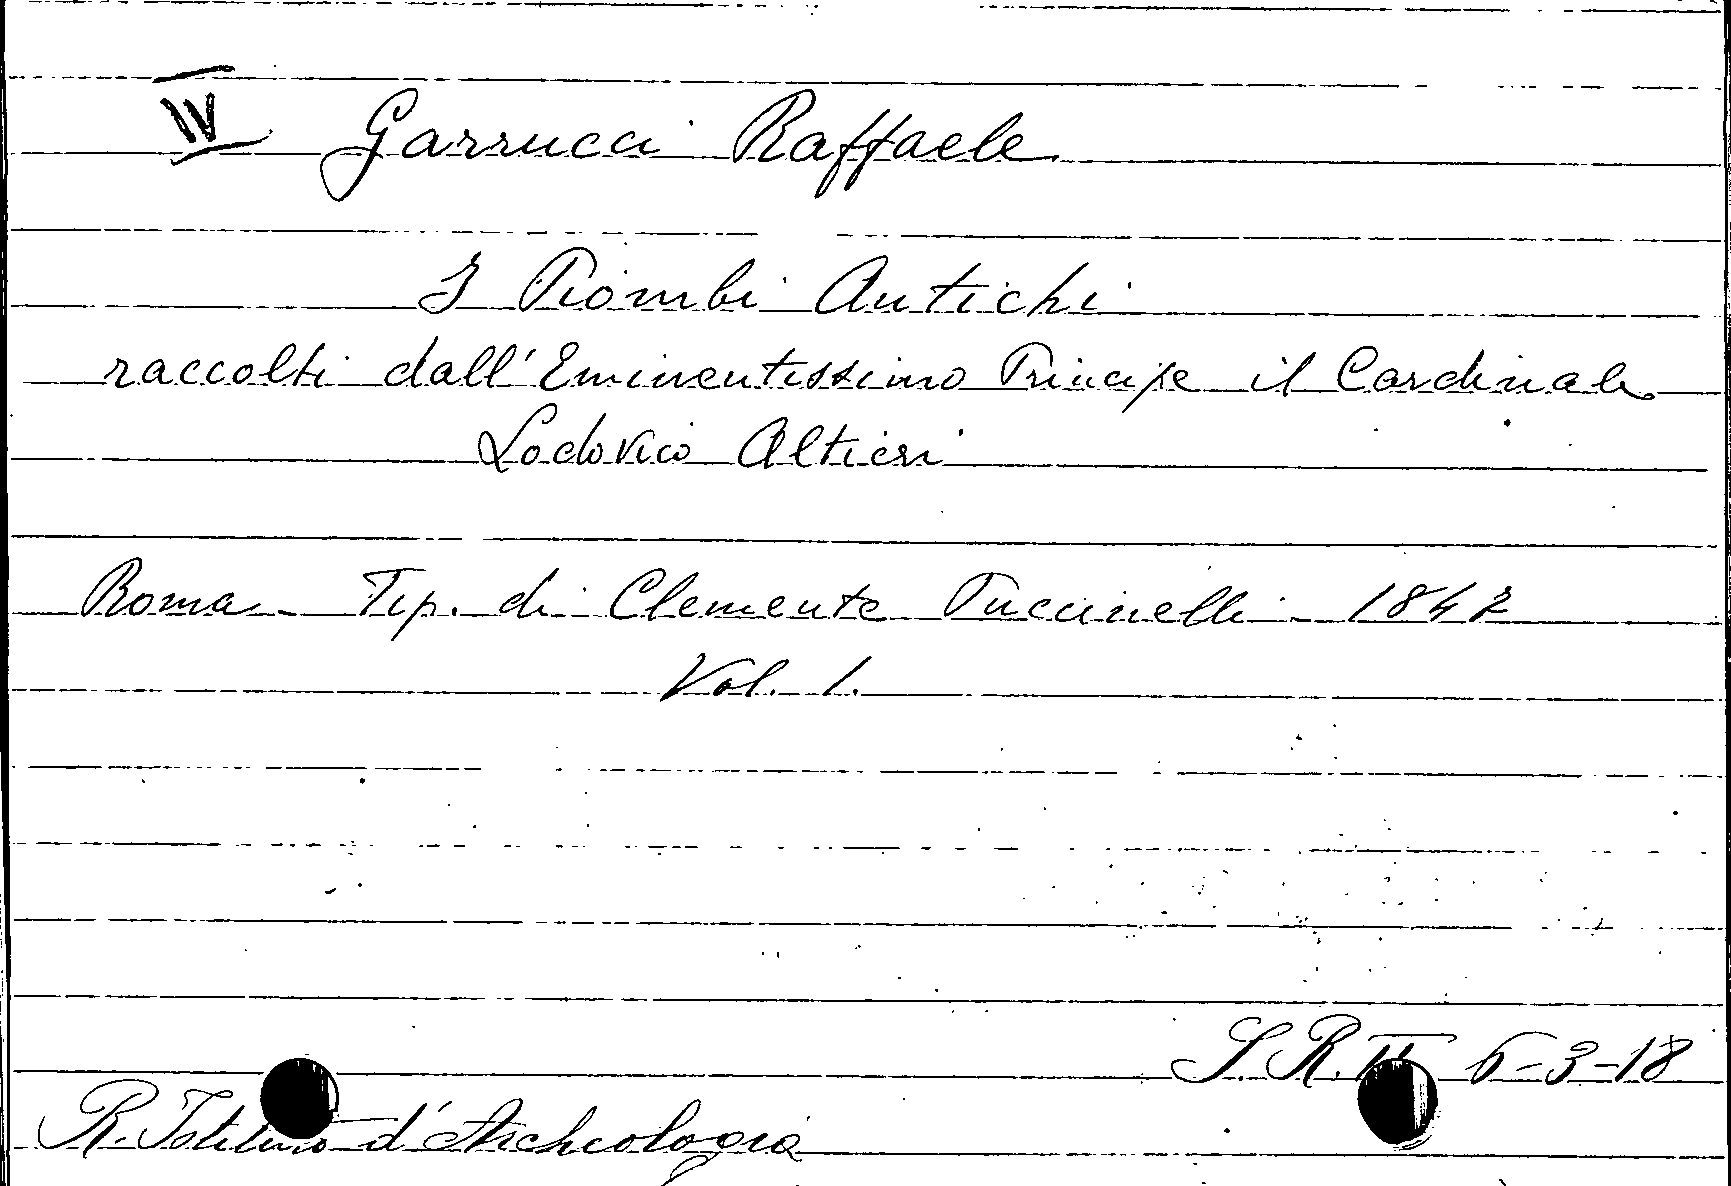 IV Garrucci Raffaele
I Piombi Antichi
raccolti dall'Eminentissimo Principe il Cardinale
Lodovico Altieri
Roma - Tip. di Clemente Puccinelli - 1847
Vol. 1.
S. R. II 6-3-18
R. Istituto d'Archeologia